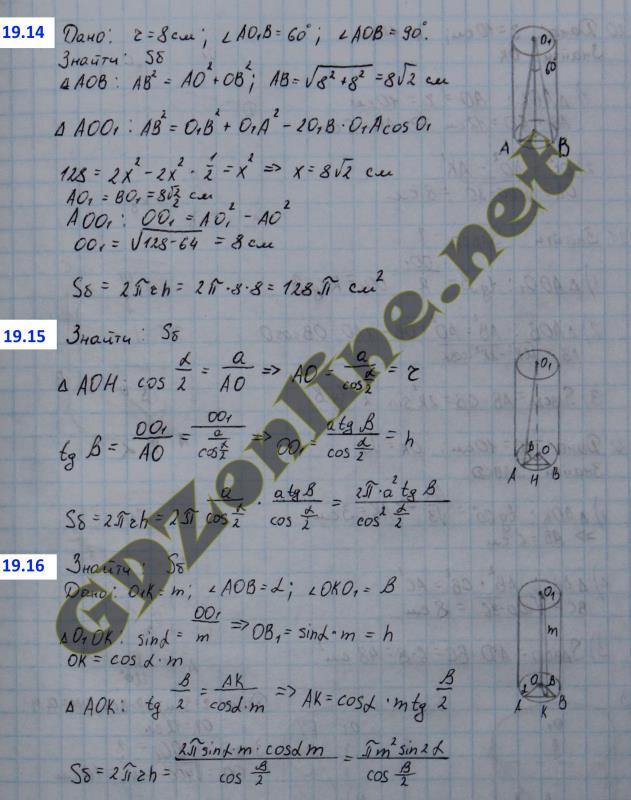 19.14 Дано: r = 8 см; ∠AO₁B = 60°; ∠AOB = 90°.
Знайти: Sб
△ AOB: AB² = AO² + OB²; AB = √8² + 8² = 8√2 см
△ AOO₁: AB² = O₁B² + O₁A² − 2O₁B · O₁A cos O₁
128 = 2x² − 2x² · 1/2 = x² ⇒ x = 8√2 см
AO₁ = BO₁ = 8√2 см
AOO₁: OO₁ = AO₁² − AO²
OO₁ = √128 − 64 = 8 см
Sб = 2πrh = 2π · 8 · 8 = 128 π см²
O₁
60°
A B
19.15 Знайти: Sб
△ AOH: cos α/2 = a/AO ⇒ AO = a/cos α/2 = r
tg B = OO₁/AO = OO₁/(a/cos α/2) ⇒ OO₁ = a tg B/cos α/2 = h
Sб = 2πrh = 2π a/cos α/2 · a tg B/cos α/2 = 2π · a² tg B/cos² α/2
O₁
B O
A H B
19.16 Знайти: Sб
Дано: O₁K = m; ∠AOB = α; ∠OKO₁ = B
△ O₁OK: sin α = OO₁/m ⇒ OB₁ = sin α · m = h
OK = cos α · m
△ AOK: tg B/2 = AK/cos α · m ⇒ AK = cos α · m tg B/2
Sб = 2πrh = 2π sin α · m · cos α m/cos B/2 = π m² sin 2α/cos B/2
O₁
m
α O B
A K B
GDZonline.net